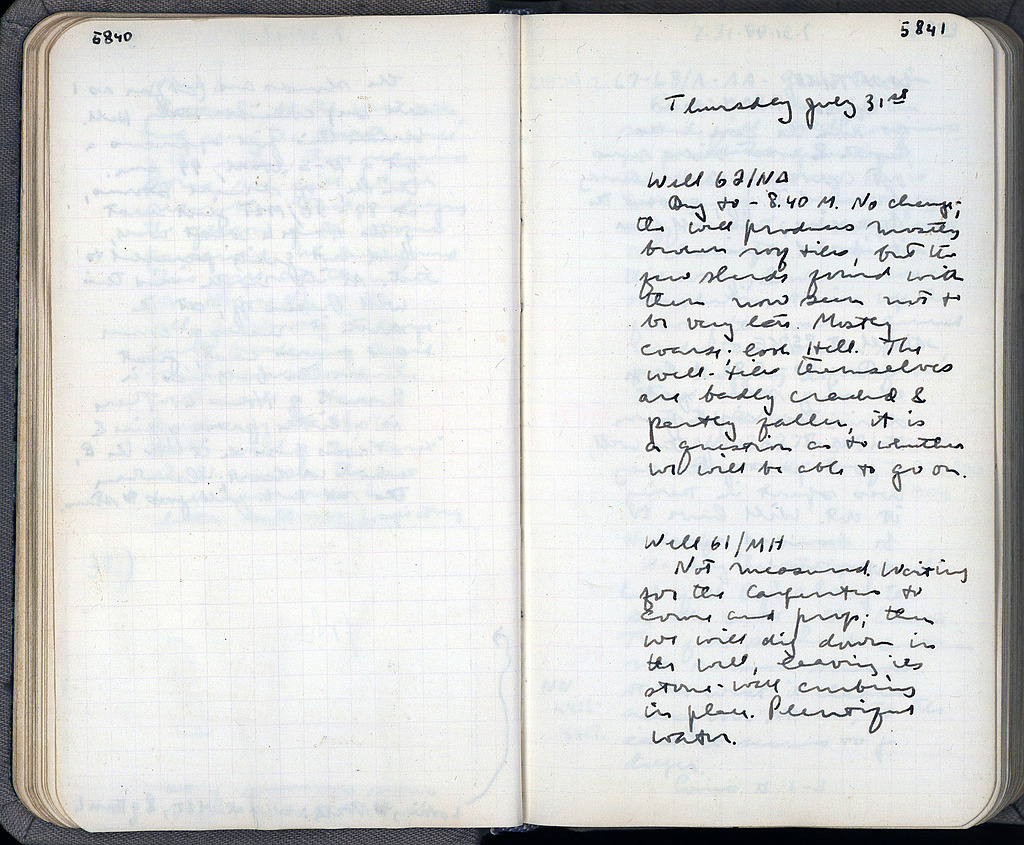 5840
5841
Thursday July 31st
Well 62/NA
Dug to -8.40 M. No change;
the well produces mostly
brown roof tiles, but the
few sherds found with
them now seem not to
be very late. Mostly
coarse; look Hell. The
well-tiles themselves
are badly cracked &
partly fallen, it is
a question as to whether
we will be able to go on.
Well 61/MH
Not measured. Waiting
for the Carpenter to
come and prop; then
we will dig down in
the well, leaving its
stone-well curbing
in place. Plentiful
water.